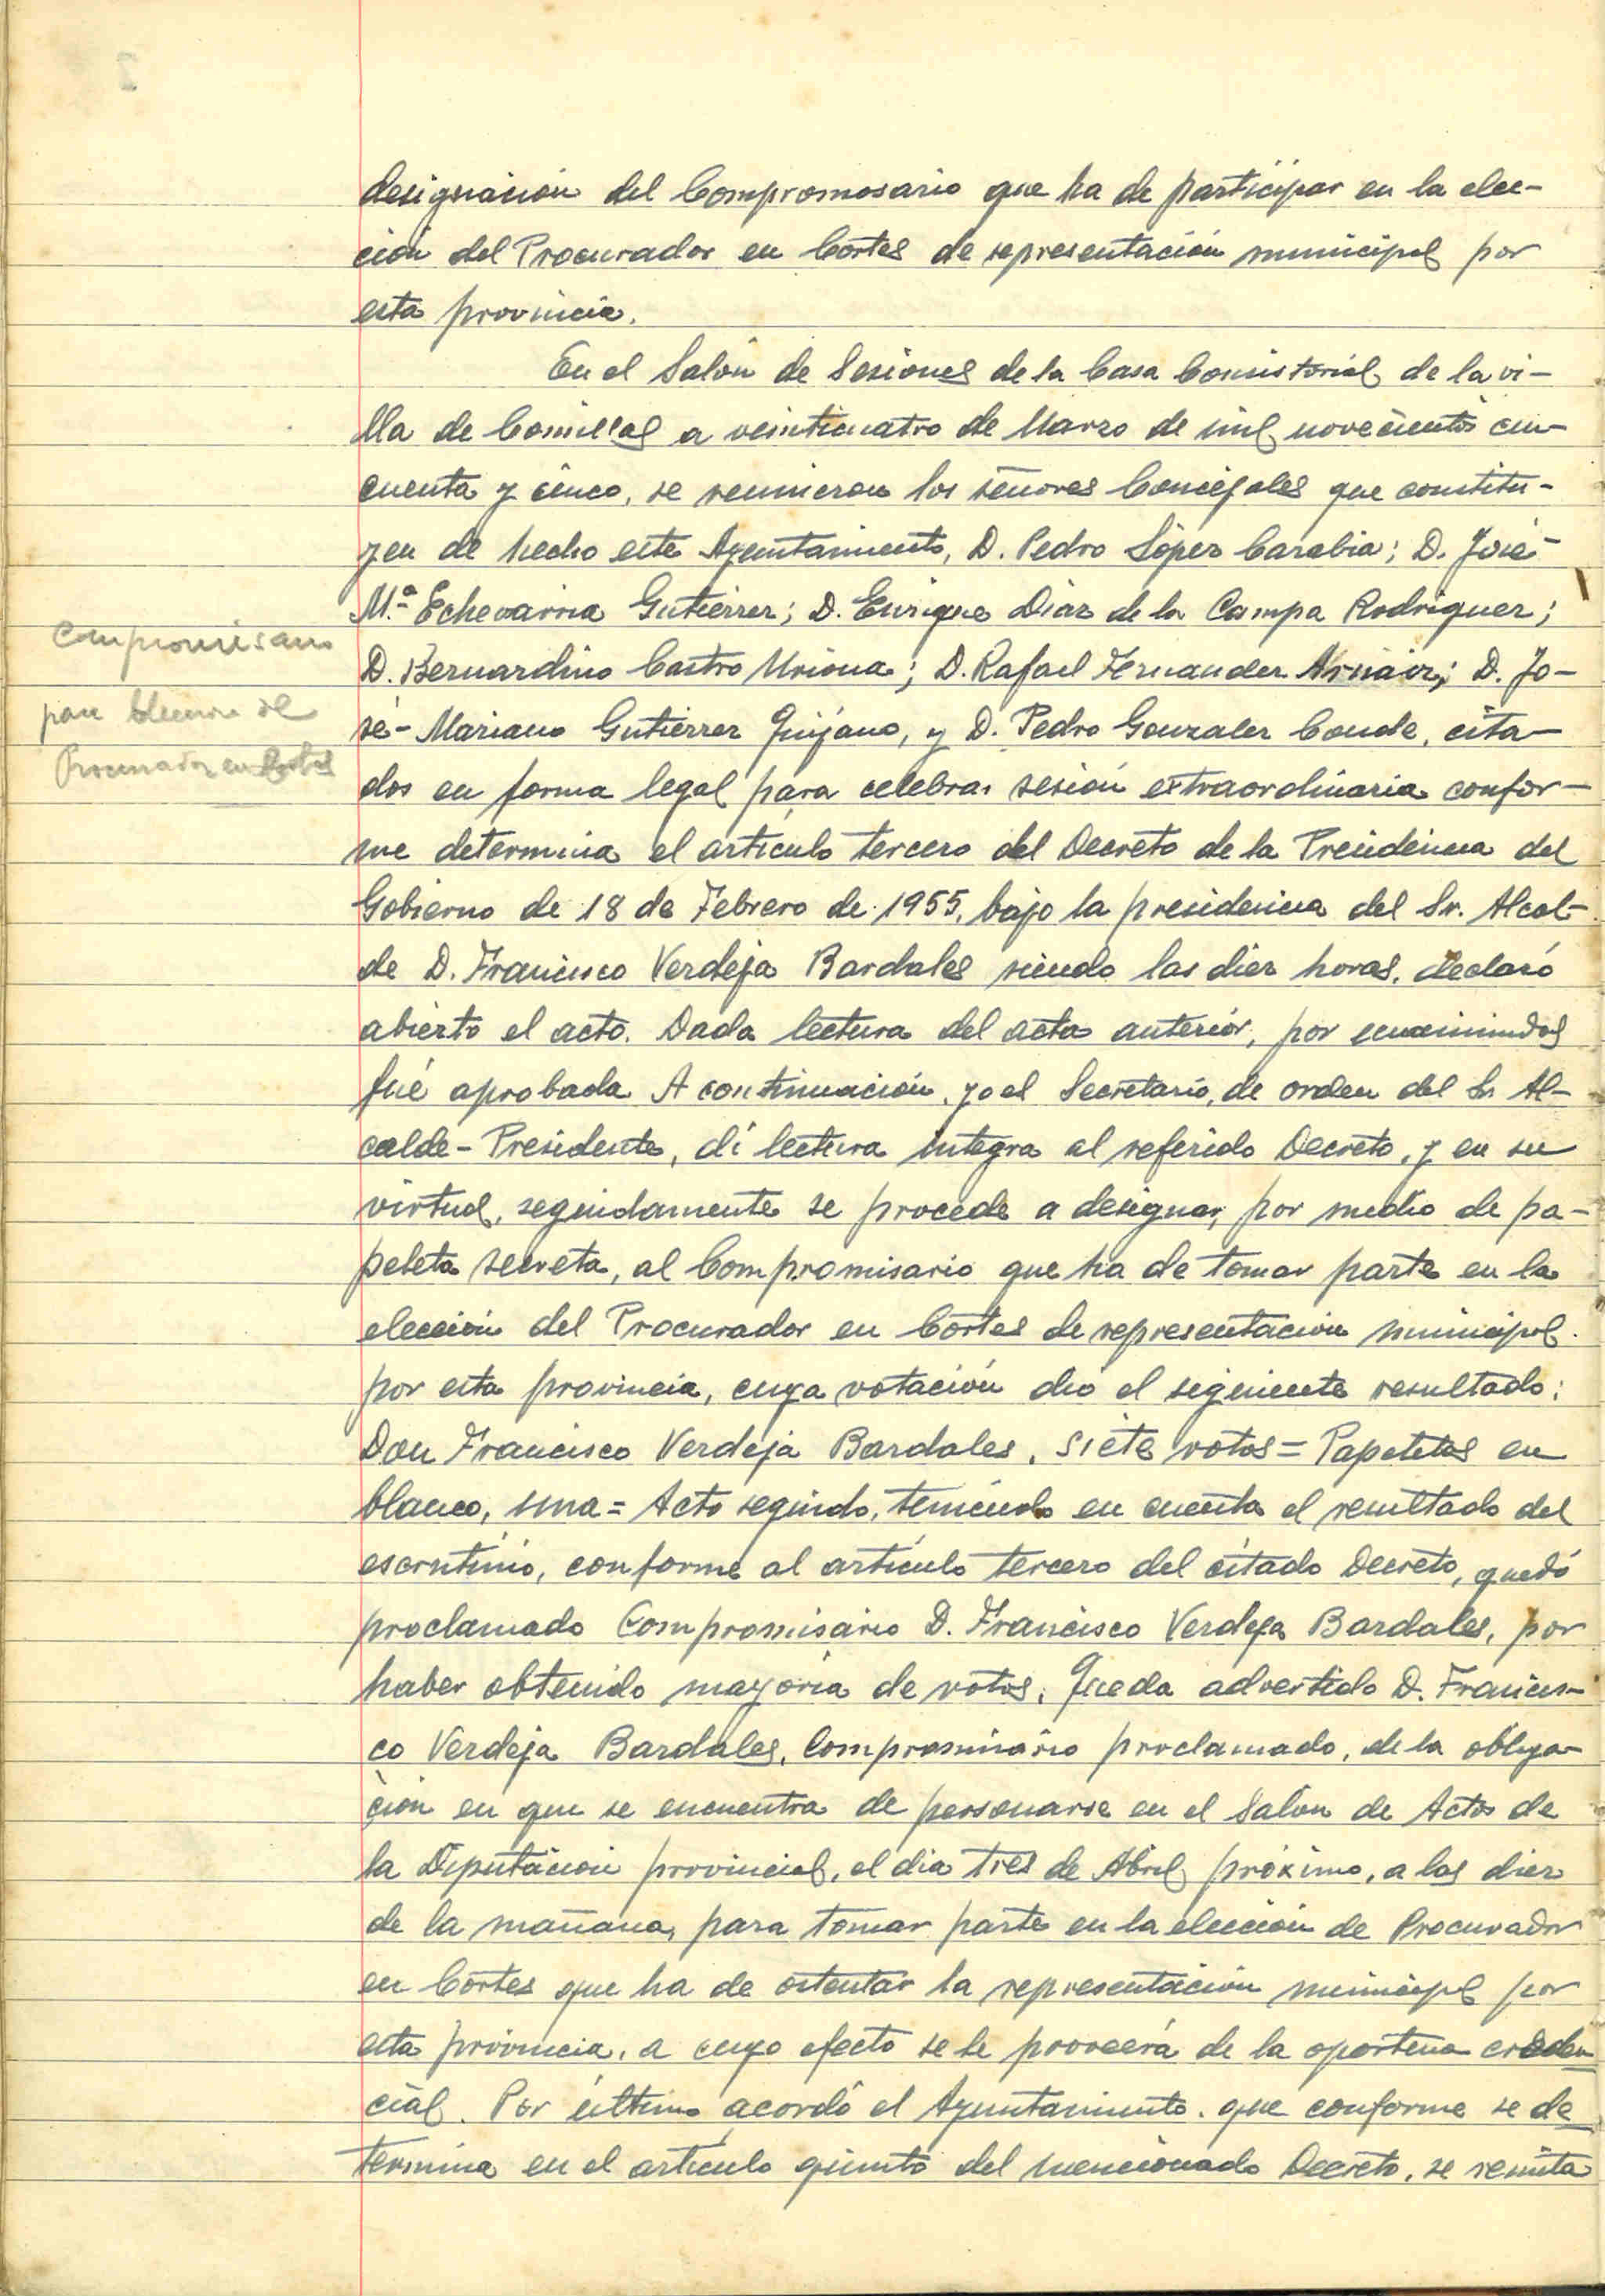 designación del Compromosario que ha de partícipar en la elec-
ción del Procurador en Cortes de representación municipal por
esta provincia.
En el Salón de Sesiones de la Casa Consistorial de la vi-
lla de Comillas a veinticuatro de Marzo de mil novecientos cin-
cuenta y cinco, se reunieron los señores Concejales que constitu-
yen de hecho este Ayuntamiento, D. Pedro López Carabia; D. José-
M.ª Echevarria Gutiérrez; D. Enrique Diaz de la Campa Rodriguez;
D. Bernardino Castro Uriona; D. Rafael Fernandez Arnaiz; D. Jo-
sé-Mariano Gutiérrez Quijano, y D. Pedro Gonzalez Conde, cita-
dos en forma legal para celebrar sesión extraordinaria confor-
me determina el artículo tercero del Decreto de la Presidencia del
Gobierno de 18 de Febrero de 1955, bajo la presidencia del Sr. Alcal-
de D. Francisco Verdeja Bardales siendo las diez horas, declaró
abierto el acto. Dada lectura del acta anterior, por unanimidad
fué aprobada. A continuación, yo el Secretario, de orden del Sr. Al-
calde-Presidente, dí lectura íntegra al referido Decreto, y en su
virtud, seguidamente se procede a designar, por medio de pa-
peleta secreta, al Compromisario que ha de tomar parte en la
elección del Procurador en Cortes de representación municipal
por esta provincia, cuya votación dió el siguiente resultado:
Don Francisco Verdeja Bardales, siete votos = Papeletas en
blanco, una = Acto seguido, teniendo en cuenta el resultado del
escrutinio, conforme al artículo tercero del citado Decreto, quedó
proclamado Compromisario D. Francisco Verdeja Bardales, por
haber obtenido mayoría de votos. Queda advertido D. Francis-
co Verdeja Bardales, Compromisario proclamado, de la obliga-
ción en que se encuentra de personarse en el Salón de Actos de
la Diputación provincial, el día tres de Abril próximo, a las diez
de la mañana, para tomar parte en la elección de Procurador
en Cortes que ha de ostentar la representación municipal por
esta provincia, a cuyo efecto se le proveerá de la oportuna creden
cial. Por último acordó el Ayuntamiento, que conforme se de
termina en el artículo quinto del mencionado Decreto, se remita
Compromisario
para Elección de
Procurador en Cortes